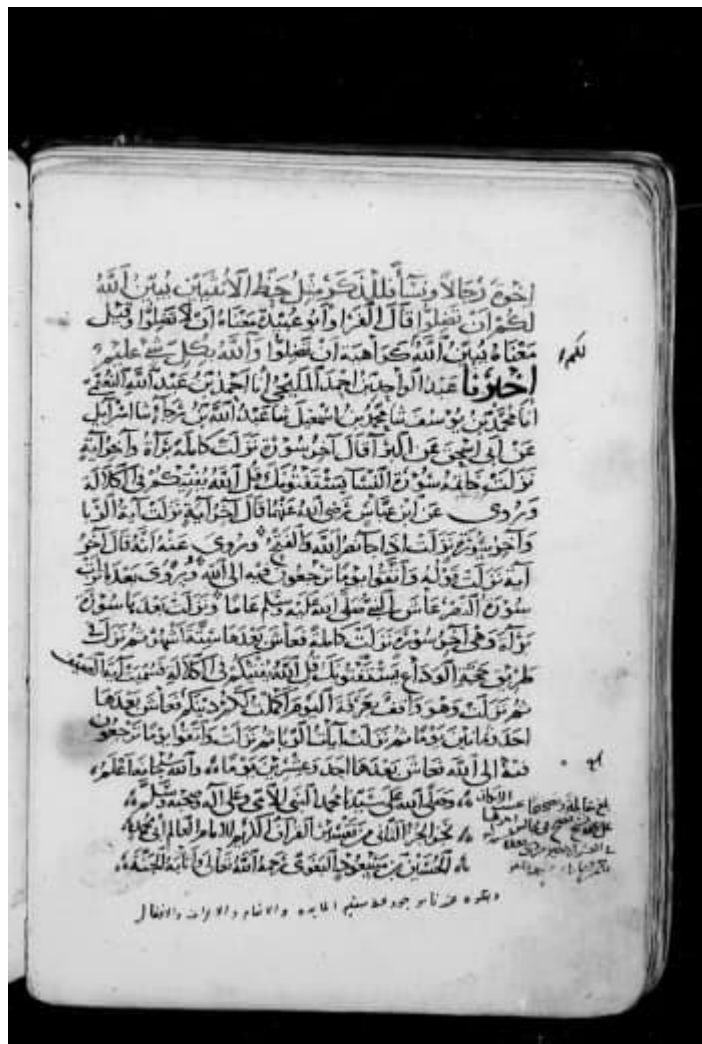 إِخْوَةً رِجَالًا وَنِسَاءً فَلِلذَّكَرِ مِثْلُ حَظِّ الْأُنْثَيَيْنِ يُبَيِّنُ اللَّهُ
لَكُمْ أَنْ تَضِلُّوا قَالَ الْفَرَّا وَأَبُو عُبَيْدَةَ مَعْنَاهُ أَنْ لَا تَضِلُّوا وَقِيلَ
مَعْنَاهُ يُبَيِّنُ اللَّهُ لكم كَرَاهِيَةَ أَنْ تَضِلُّوا وَاللَّهُ بِكُلِّ شَيْءٍ عَلِيمٌ
أَخْبَرَنَا عَبْدُ الْوَاحِدِ بْنُ أَحْمَدَ الْمَلِيحِيُّ أَنَا أَحْمَدُ بْنُ عَبْدِ اللَّهِ النُّعَيْمِيُّ
أَنَا مُحَمَّدُ بْنُ يُوسُفَ ثنا مُحَمَّدُ بْنُ إِسْمَعِيلَ ثنا عَبْدُ اللَّهِ بْنُ رَجَاءٍ ثنا إِسْرَائِيلُ
عَنْ أَبِي إِسْحَقَ عَنِ الْبَرَاءِ قَالَ آخِرُ سُورَةٍ نَزَلَتْ كَامِلَةً بَرَاءَةُ وَآخِرُ آيَةٍ
نَزَلَتْ خَاتِمَةُ سُورَةِ النِّسَاءِ يَسْتَفْتُونَكَ قُلِ اللَّهُ يُفْتِيكُمْ فِي الْكَلَالَةِ
وَرُوِيَ عَنِ ابْنِ عَبَّاسٍ رَضِيَ اللَّهُ عَنْهُمَا قَالَ آخِرُ آيَةٍ نَزَلَتْ آيَةُ الرِّبَا
وَآخِرُ سُورَةٍ نَزَلَتْ إِذَا جَاءَ نَصْرُ اللَّهِ وَالْفَتْحُ وَرُوِيَ عَنْهُ أَنَّهُ قَالَ آخِرُ
آيَةٍ نَزَلَتْ قَوْلُهُ وَاتَّقُوا يَوْمًا تُرْجَعُونَ فِيهِ إِلَى اللَّهِ وَرُوِيَ بَعْدَمَا نَزَلَتْ
سُورَةُ النَّصْرِ عَاشَ النَّبِيُّ صَلَّى اللَّهُ عَلَيْهِ وَسَلَّمَ عَامًا وَنَزَلَتْ بَعْدَهَا سُورَةُ
بَرَاءَةَ وَهِيَ آخِرُ سُورَةٍ نَزَلَتْ كَامِلَةً فَعَاشَ بَعْدَهَا سِتَّةَ أَشْهُرٍ ثُمَّ نَزَلَتْ فِي
طَرِيقِ حَجَّةِ الْوَدَاعِ يَسْتَفْتُونَكَ قُلِ اللَّهُ يُفْتِيكُمْ فِي الْكَلَالَةِ فَسُمِّيَتْ آيَةَ الصَّيْفِ
ثُمَّ نَزَلَتْ وَهُوَ وَاقِفٌ بِعَرَفَةَ الْيَوْمَ أَكْمَلْتُ لَكُمْ دِينَكُمْ فَعَاشَ بَعْدَهَا
أَحَدًا وَثَمَانِينَ يَوْمًا ثُمَّ نَزَلَتْ آيَاتُ الرِّبَا ثُمَّ نَزَلَتْ وَاتَّقُوا يَوْمًا تُرْجَعُونَ
فِيهِ إِلَى اللَّهِ فَعَاشَ بَعْدَهَا أَحَدَ وَعِشْرِينَ يَوْمًا وَاللَّهُ سُبْحَانَهُ أَعْلَمُ
وَصَلَّى اللَّهُ عَلَى سَيِّدِنَا مُحَمَّدٍ النَّبِيِّ الْأُمِّيِّ وَعَلَى آلِهِ وَصَحْبِهِ وَسَلَّمَ
نجز الجزء الثاني مِنْ تَفْسِيرِ الْقُرْآنِ الْكَرِيمِ لِلْإِمَامِ الْعَالِمِ أَبِي مُحَمَّدٍ
الْحُسَيْنِ بْنِ مَسْعُودٍ الْبَغَوِيِّ رَحِمَهُ اللَّهُ تَعَالَى وَأَثَابَهُ الْجَنَّةَ
المايده والانعام والاعراف والانفال